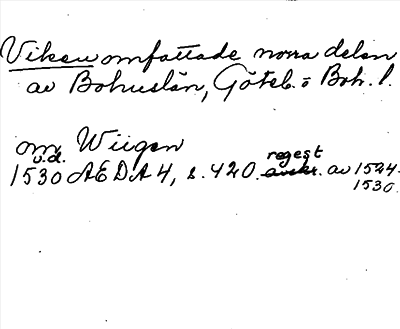 Viken omfattade norra delen
av Bohuslän, Göteb. o Boh. l.
om Wiigen
o.d.
regest
1530 AEDA 4, s. 420. avskr. av 1524.
1530.